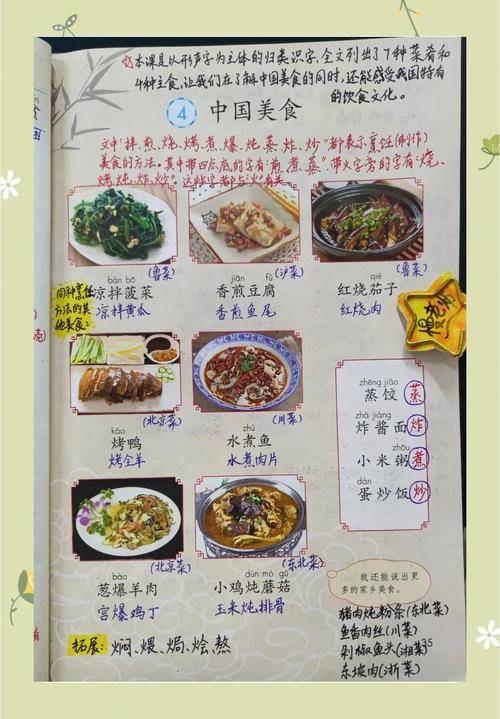 本课是以形声字为主体的归类识字,全文列出了7种菜肴和
4种主食,让我们在了解中国美食的同时,还能感受我国特有
的饮食文化。
4 中国美食
文中"拌、煎、烧、烤、煮、爆、炖、蒸、炸、炒"都表示烹饪(制作)
美食的方法。其中带四点底的字有:煎、煮、蒸"带火字旁的字有:烧、
烤、炖、炸、炒"这些字都与"火"有关
(鲁菜)
(沪菜)
(鲁菜)
bàn bō
凉拌菠菜
jiān fǔ
香煎豆腐
qié
红烧茄子
同种烹饪
方法的其
他美食:
凉拌黄瓜
香煎鱼尾
红烧肉
慢老师
(北京菜)
(川菜)
kǎo
烤鸭
zhǔ
水煮鱼
烤全羊
水煮肉片
zhēng jiǎo
蒸饺 蒸
zhá jiàng
炸酱面 炸
zhōu
小米粥 煮
dàn
蛋炒饭 炒
(北京菜)
(东北菜)
bào
葱爆羊肉
dùn mó gū
小鸡炖蘑菇
宫爆鸡丁
玉米炖排骨
我还能说出更
多的家乡美食。
拓展: 焖、煨、焗、烩、熬
猪肉炖粉条(东北菜)
鱼香肉丝(川菜)
剁椒鱼头(湘菜)
35
东坡肉(浙菜)